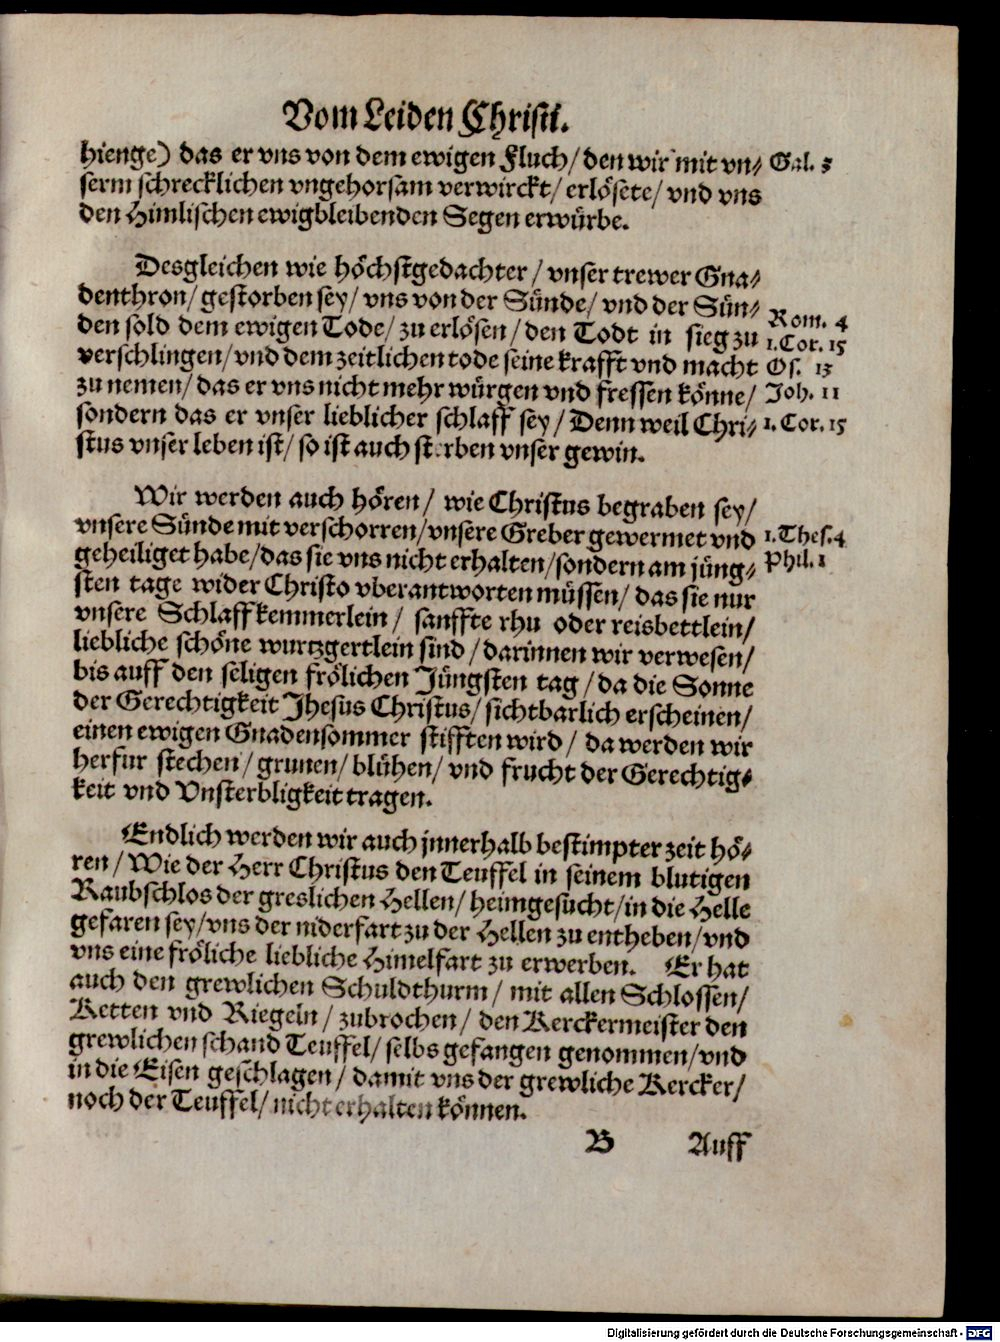 Vom Leiden Christi.
hienge) das er vns von dem ewigen Fluch/ den wir mit vn⸗ Gal. 3
serm schrecklichen vngehorsam verwirckt/ erlösete/ vnd vns
den Himlischen ewigbleibenden Segen erwürbe.
Desgleichen wie höchstgedachter/ vnser trewer Gna⸗
denthron/ gestorben sey/ vns von der Sünde/ vnd der Sün⸗
den sold dem ewigen Tode/ zu erlösen/ den Todt in sieg zu
verschlingen/ vnd dem zeitlichen tode seine krafft vnd macht
zu nemen/ das er vns nicht mehr würgen vnd fressen könne/
sondern das er vnser lieblicher schlaff sey/ Denn weil Chri⸗
stus vnser leben ist/ so ist auch sterben vnser gewin.
Rom. 4
1. Cor. 15
Os. 13
Joh. 11
1. Cor. 15
Wir werden auch hören/ wie Christus begraben sey/
vnsere Sünde mit verschorren/ vnsere Greber gewermet vnd
geheiliget habe/ das sie vns nicht erhalten/ sondern am jüng⸗
sten tage wider Christo vberantworten müssen/ das sie nur
vnsere Schlaffkemmerlein/ sanffte rhu oder reisbettlein/
liebliche schöne wurtzgertlein sind/ darinnen wir verwesen/
bis auff den seligen frölichen Jüngsten tag/ da die Sonne
der Gerechtigkeit Jhesus Christus/ sichtbarlich erscheinen/
einen ewigen Gnadensommer stifften wird/ da werden wir
herfur stechen/ grunen/ blühen/ vnd frucht der Gerechtig⸗
keit vnd Vnsterbligkeit tragen.
1. Thes. 4
Phil. 1
Endlich werden wir auch jnnerhalb bestimpter zeit hö⸗
ren/ Wie der Herr Christus den Teuffel in seinem blutigen
Raubschlos der greslichen Hellen/ heimgesucht/ in die Helle
gefaren sey/ vns der niderfart zu der Hellen zu entheben/ vnd
vns eine fröliche liebliche Himelfart zu erwerben. Er hat
auch den grewlichen Schuldthurm/ mit allen Schlossen/
Ketten vnd Riegeln/ zubrochen/ den Kerckermeister den
grewlichen schand Teuffel/ selbs gefangen genommen/ vnd
in die Eisen geschlagen/ damit vns der grewliche Kercker/
noch der Teuffel/ nicht erhalten können.
B Auff
Digitalisierung gefördert durch die Deutsche Forschungsgemeinschaft - DFG